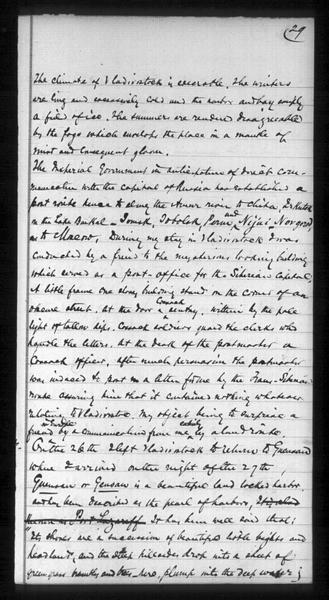 29
The climate of Vladivostock is execrable. The winters
are long and excessively cold and the harbor and bay simply
a field of ice. The summer are rendered disagreeable
by the fogs which envelops the place in a mantle of
mist and consequent gloom.
The Imperial Government in anticipation of direct com-
munication with the capital of Russia has established a
post route hence to along the Amur river to Chita, Irkutsk
on the Lake Baikal - Tomsk, Tobolsk, Perm and Nijni-Novgorod
to Moscow. During my stay in Vladivostock I was
conducted by a friend to the mysterious looking building
which served as a post-office for the Siberian Capital.
A little frame one story building stands on the corner of an
obscure street. At the door a Cossack sentry, within by the pale
light of tallow dips, Cossack soldiers guard the clerks who
handle the letters. At the desk of the postmaster a
Cossack officer, after much persuasion the postmaster
was induced to post me a letter for me by the Trans-Siberian
route assuring him that it contained nothing whatsoever
relating to Vladivostock. My object being to surprise a
friend in Europe by a communication from me by entirely inland route.
On the 26th I left Vladivostock to return to Gensan
where I arrived on the night of the 27th.
Yuensan or Gensan is a beautiful land locked harbor.
and has been described as the pearl of harbors,
Port Lazareff It has been well said that:
"Its shores are a succession of beautiful noble heights and
headlands, and the steep hillsides drop into a sheet of
green grass brambly and trees, here, plump into the deep water;